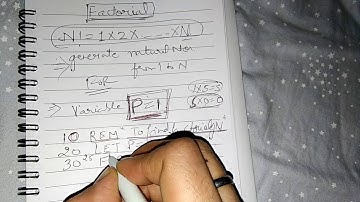 Factorial
N! = 1x2x.....xN
→ generate natural Nos
from 1 to N
For
→ Variable P=1
1x5=5
5x0=0
10 REM To find factorial N
20 LET P=
25
30 F